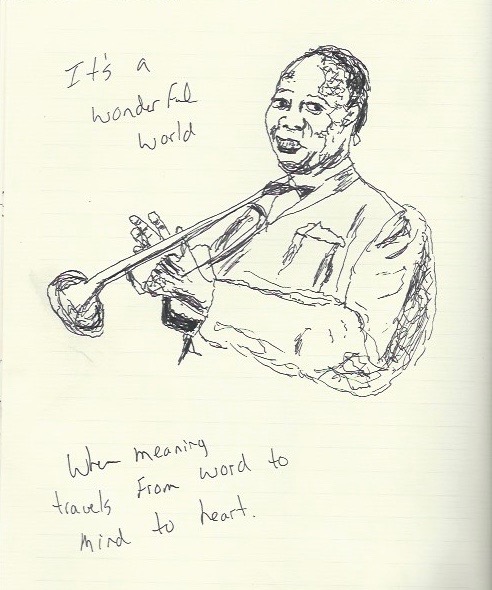 It's a
wonderful
world
When meaning
travels from word to
mind to heart.